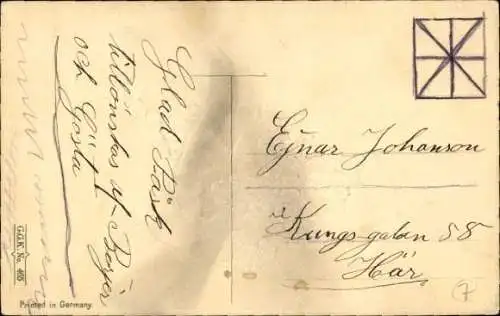 Glad Påsk
tillönskas af Börje
och Gösta
Ejnar Johanson
Kungs-gatan 58
Här
G.G.K. No. 465
Printed in Germany
7